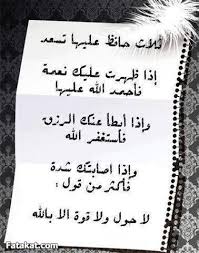 ثلاث حافظ عليها تسعد
إذا ظهرت عليك نعمة
فأحمد الله عليها
وإذا أبطأ عنك الرزق
فأستغفر الله
وإذا اصابتك شدة
فأكثر من قول :
لا حول ولا قوة الا بالله
Fatakat.com